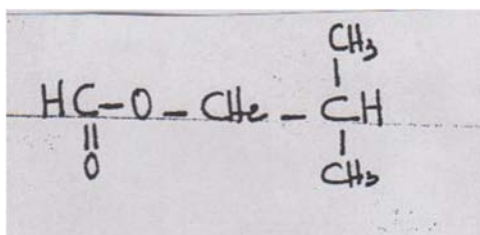 CH₃
HC-O-CH₂-CH
O
CH₃